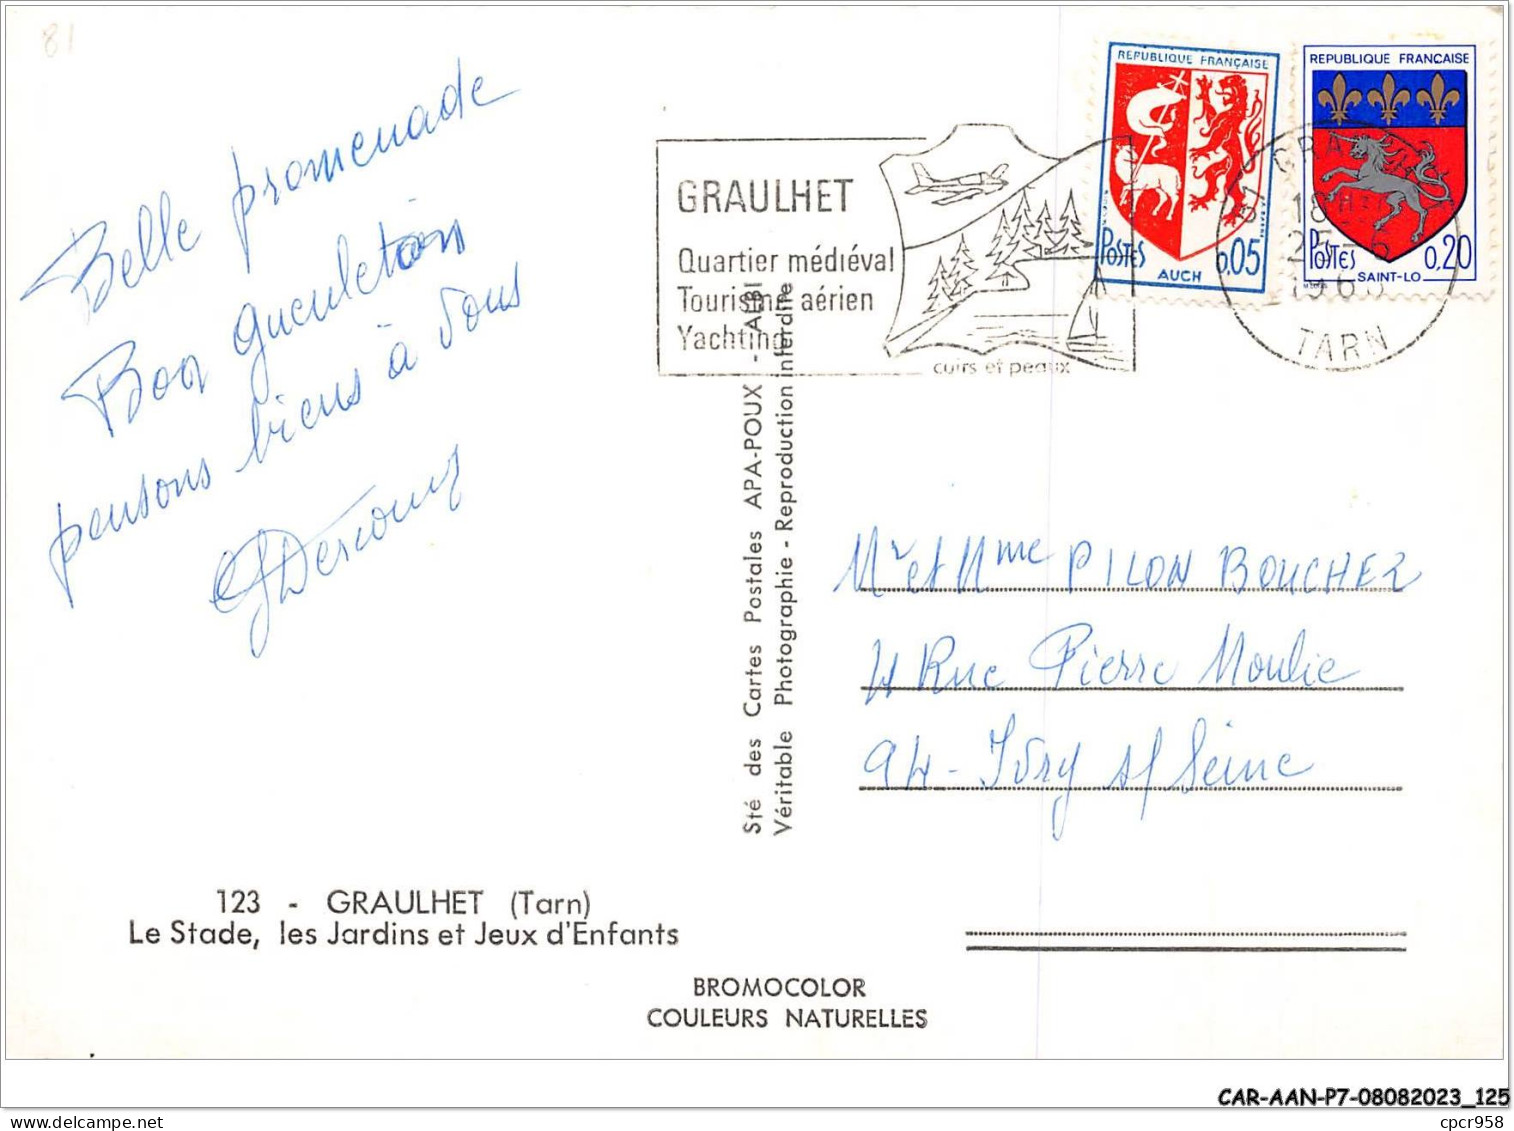 81
Belle promenade
Bon gueuleton
pensons biens à vous
GRAULHET
Quartier médiéval
Tourisme aérien
Yachting
cuirs et peaux
REPUBLIQUE FRANÇAISE
POSTES
0,05
AUCH
REPUBLIQUE FRANCAISE
POSTES
0,20
SAINT-LO
81 GRA
18H
25-6
TARN
Sté des Cartes Postales APA-POUX - ALBI
Véritable Photographie - Reproduction interdite
Mr et Mme PILON BOUCHEZ
4 Rue Pierre Moulie
94 - Ivry s/ Seine
123 - GRAULHET (Tarn)
Le Stade, les Jardins et Jeux d'Enfants
BROMOCOLOR
COULEURS NATURELLES
CAR-AAN-P7-08082023_125
cpcr958